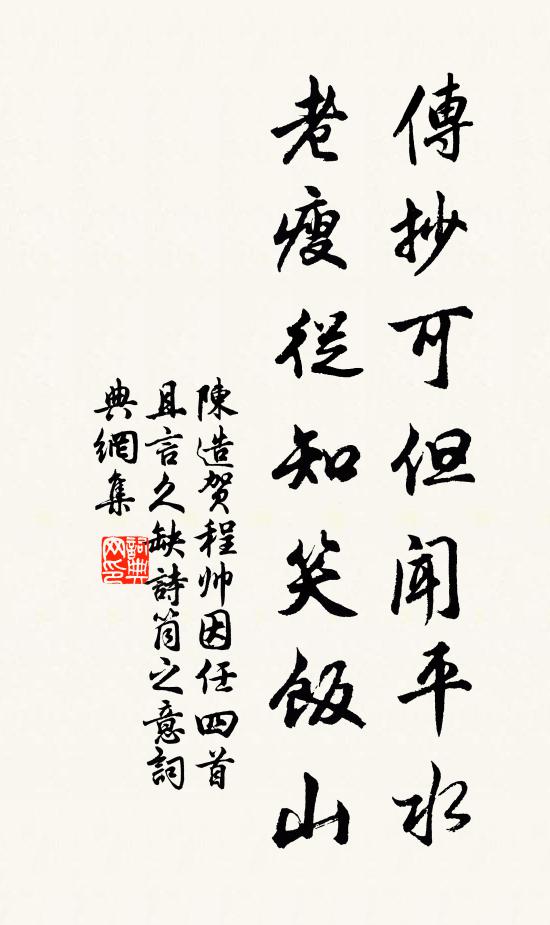 傳抄可但聞平水
老瘦從知笑飯山
陳造賀程帅因任四首
且言久缺詩筒之意詞
典網集
詞典网印